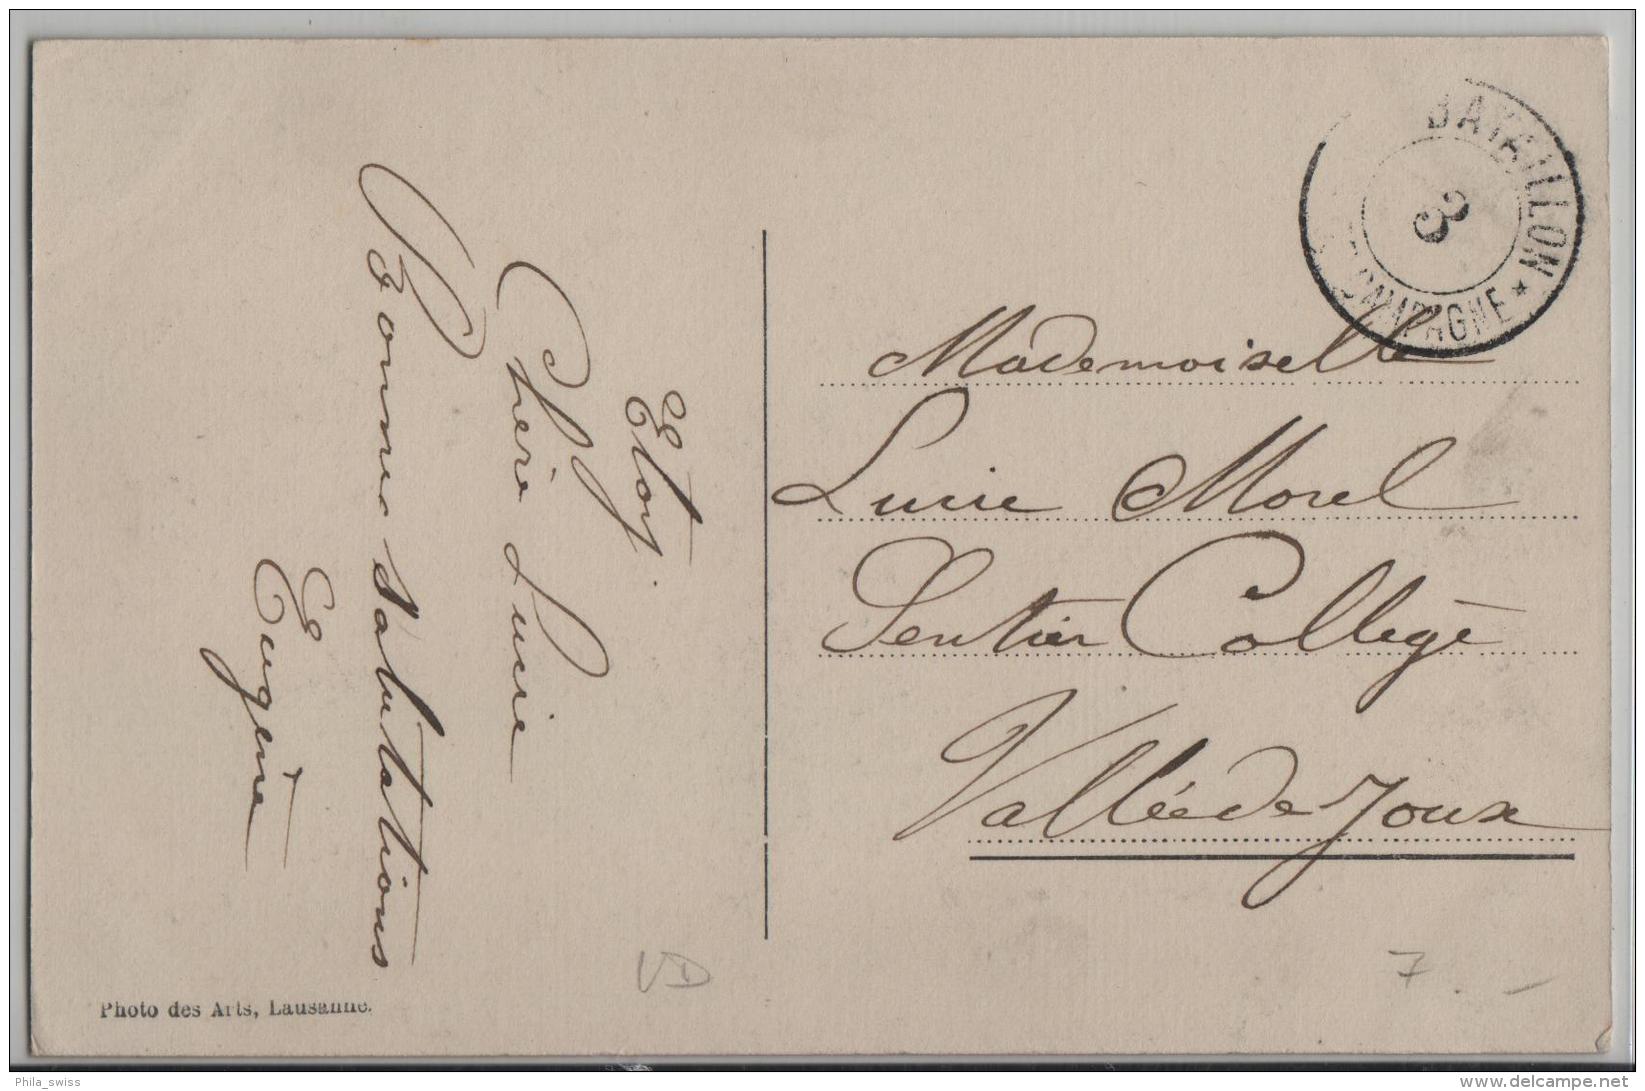 Etoy.
Chère Lucie
Bonnes salutations
Eugène
Photo des Arts, Lausanne.
BATAILLON
3
COMPAGNE ★
Mademoiselle
Lucie Morel
Sentier Collège
Vallée de Joux
VD
7.–
Phila_swiss
delcampe.net